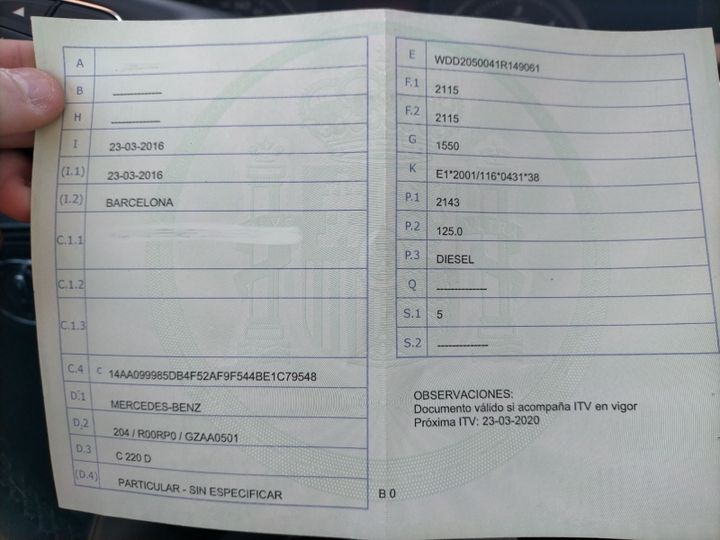 A
B -------------
H -------------
I 23-03-2016
(I.1) 23-03-2016
(I.2) BARCELONA
C.1.1
C.1.2
C.1.3
C.4 c 14AA099985DB4F52AF9F544BE1C79548
D.1 MERCEDES-BENZ
D.2 204 / R00RP0 / GZAA0501
D.3 C 220 D
(D.4) PARTICULAR - SIN ESPECIFICAR
E WDD2050041R149061
F.1 2115
F.2 2115
G 1550
K E1*2001/116*0431*38
P.1 2143
P.2 125.0
P.3 DIESEL
Q -------------
S.1 5
S.2 -------------
OBSERVACIONES:
Documento válido si acompaña ITV en vigor
Próxima ITV: 23-03-2020
B 0